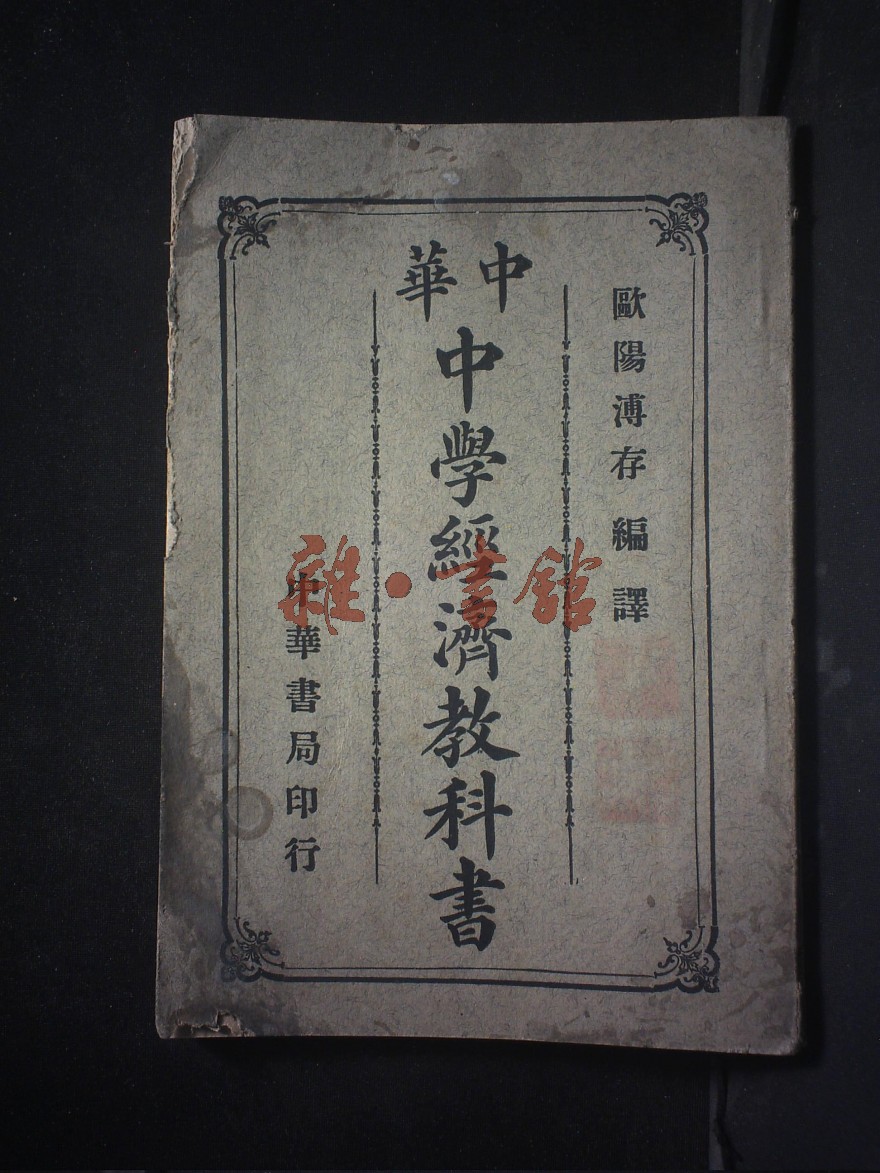 歐陽溥存 編譯
中華
中學經濟教科書
中華書局印行
雜·書館